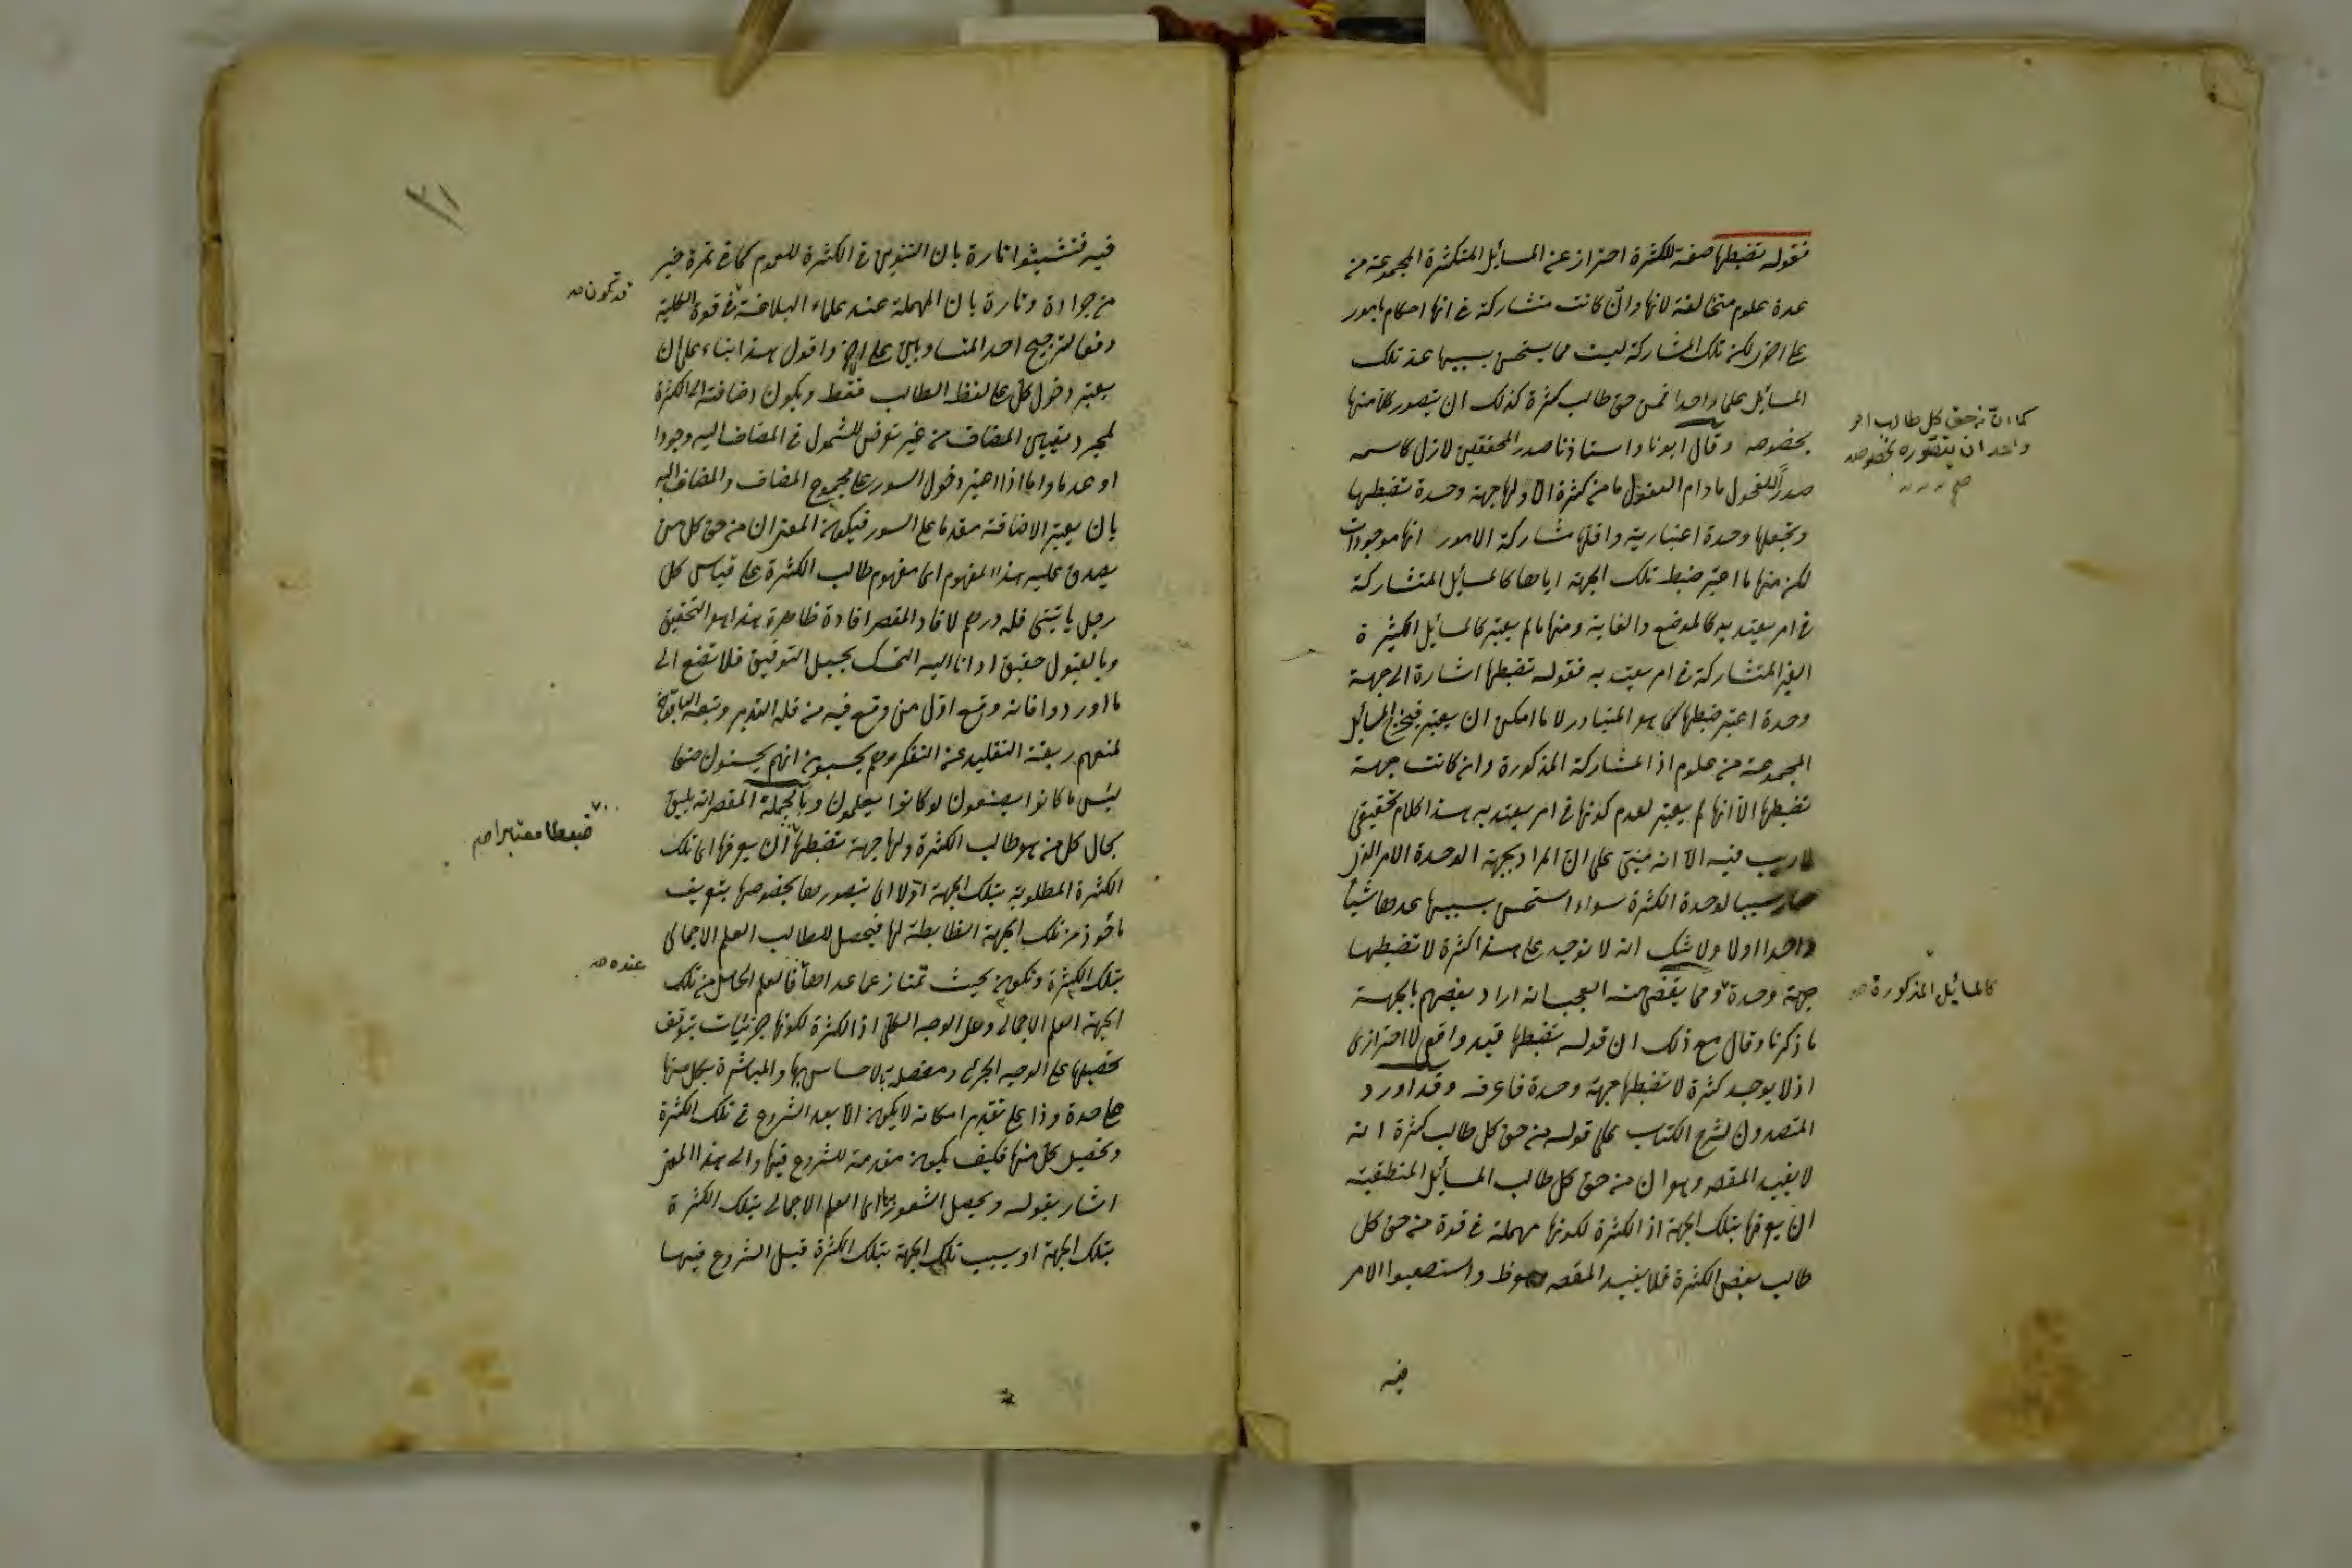 فقوله تضبطها صفة للكثرة احتراز عن المسائل المتكثرة المجموعة من
عدة علوم متخالفة لانها وان كانت متشاركة في انها احكام بامور
على اخر لكن تلك المشاركة ليست مما يستحسن بسببها عد تلك
المسائل علما واحدا فمن حق طالب كثرة كذلك ان يتصور كلا منها
بخصوصه وقال ابونا واستاذنا صدر المحققين لازال كاسمه
صدرا للفحول مادام العقول ما من كثرة الا ولها جهة وحدة تضبطها
وتجعلها وحدة اعتبارية واقلها مشاركة الامور انها موجودات
لكن منها ما اعتبر ضبط تلك الجهة اياها كالمسائل المتشاركة
في امر يعتد به كالموضوع والغاية ومنها ما لم يعتبر كالمسائل الكثيرة
الغير المتشاركة في امر يعتد به فقوله تضبطها اشارة الى جهة
وحدة اعتبر ضبطها كما هو المتبادر لا ما امكن ان يعتبر فيخرج المسائل
المجموعة من علوم اذ المشاركة المذكورة وان كانت جهة
تضبطها الا انها لم يعتبر لعدم كونها في امر يعتد به هذا كلام تحقيقي
لا ريب فيه الا انه مبنى على ان المراد بجهة الوحدة الامر الذي
صار سببا لوحدة الكثرة سواء استحسن بسببها عدها شيئا
واحدا اولا ولا شك انه لا توجد على هذا كثرة لا تضبطها
جهة وحدة ومما يقضى منه العجب انه اراد بعضهم بالجهة
ما ذكرنا وقال مع ذلك ان قوله تضبطها قيد واقعي لا احترازى
اذ لا يوجد كثرة لا تضبطها جهة وحدة فاعرفه وقد اورد
المتصدون لشرح الكتاب على قوله من حق كل طالب كثرة انه
لا يفيد المقصد وهو ان من حق كل طالب المسائل المنطقية
ان يعرفها بتلك الجهة اذ الكثرة لكونها مهملة في قوة من حق كل
طالب بعض الكثرة فلا يفيد المقصد واستصعبوا الامر
فيه
كما ان من حق كل طالب امر
واحد ان يتصوره بخصوصه
صح
كالمسائل المذكورة صح
فيه فتشبثوا تارة بان التنوين في الكثرة للعموم كما في تمرة خير
من جرادة وتارة بان المهملة عند علماء البلاغة في قوة الكلية
دفعا لترجيح احد المتساويين على الاخر واقول هذا بناء على ان
يعتبر دخول كل على لفظ الطالب فقط ويكون اضافته الى الكثرة
لمجرد تعيين المضاف من غير تعرض للشمول في المضاف اليه وجودا
او عدما واما اذا اعتبر دخول السور على مجموع المضاف والمضاف اليه
بان يعتبر الاضافة مقدما على السور فيكون المعنى ان من حق كل من
يصدق عليه هذا المفهوم اى مفهوم طالب الكثرة على قياس كل
رجل ياتينى فله درهم لافاد المقصد افادة ظاهرة هذا هو التحقيق
وبالقبول حقيق اذ انا اليه التمسك بحبل التوفيق فلا تصغ الى
ما اوردوا فانه وقع اول من وقع فيه من قلة التدبر وتبعه الباقون
لمنعهم ربقة التقليد عن التفكر وهم يحسبون انهم يحسنون صنعا
لبئس ما كانوا يصنعون لو كانوا يعلمون وبالجملة المقصد انه يليق
بحال كل من هو طالب الكثرة ولها جهة تضبطها ان يعرفها اى تلك
الكثرة المطلوبة بتلك الجهة اولا اى يتصورها بخصوصها بتعريف
ماخوذ من تلك الجهة الضابطة لها فيحصل للطالب العلم الاجمالى
بتلك الكثرة وتكون بحيث تمتاز عما عداها فالعلم الحاصل من تلك
الجهة العلم الاجمالى وعلى الوجه الكلى اذ الكثرة لكونها جزئيات يتوقف
تحصيلها على الوجه الجزئى ومفصلة بالاحساس بها والمباشرة بكل منها
على حدة وذا على تقدير امكانه لا يكون الا بعد الشروع في تلك الكثرة
وتحصيل كل منها فكيف يكون مقدمة للشروع فيها والى هذا المعنى
اشار بقوله ويحصل الشعور بها اى العلم الاجمالى بتلك الكثرة
بتلك الجهة او بسبب تلك الجهة بتلك الكثرة قبل الشروع فيها
قد تكون صح
ضبطا معتبرا صح
عنده صح